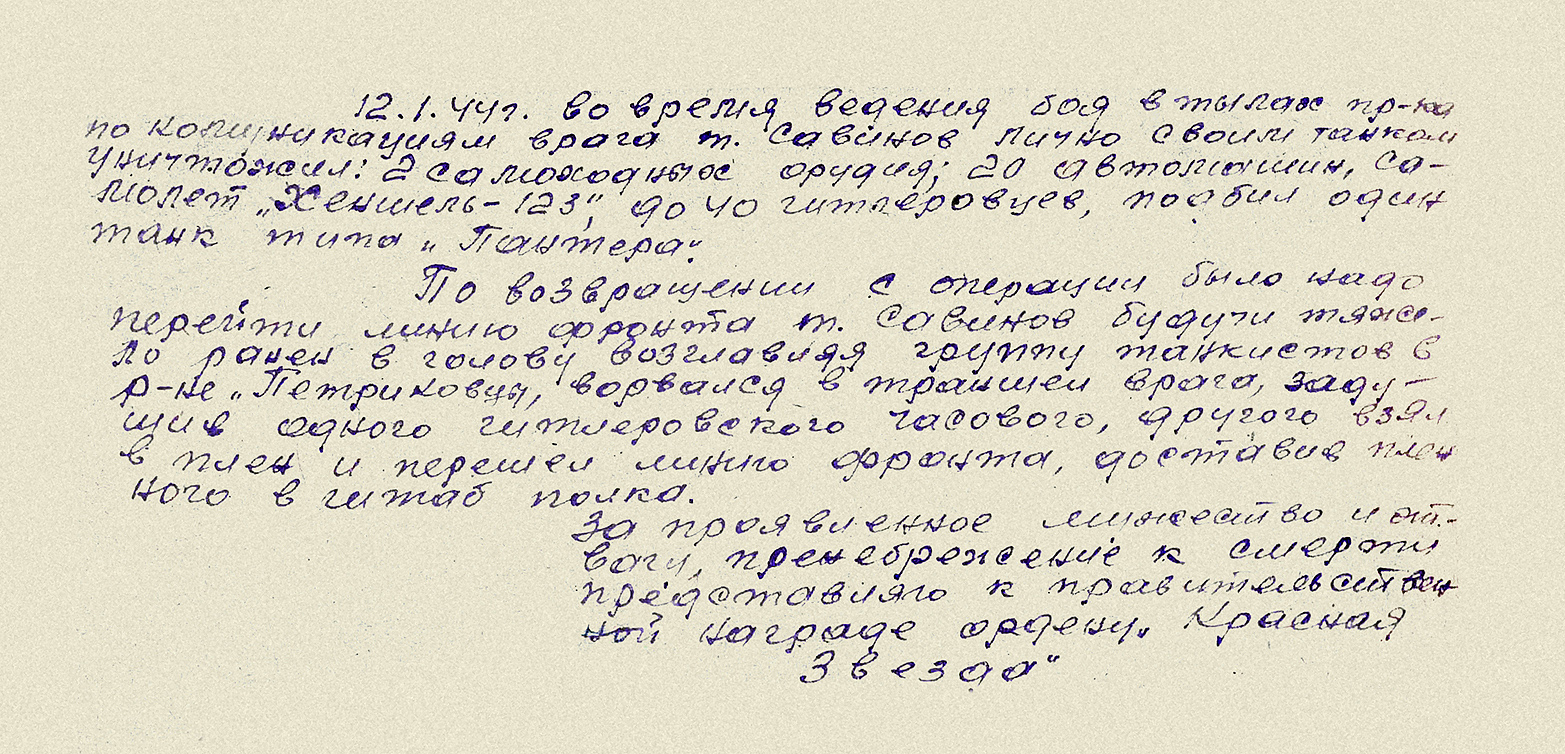 12.1.44г. во время ведения боя в тылах пр-ка
по коммуникациям врага т. Савинов лично своим танком
уничтожил: 2 самоходных орудия; 20 автомашин, са-
молет „Хеншель-123", до 40 гитлеровцев, подбил один
танк типа „Пантера".
По возвращении с операции было надо
перейти линию фронта т. Савинов будучи тяже-
ло ранен в голову возглавляя группу танкистов в
р-не „Петриковцы, ворвался в траншеи врага, заду-
шив одного гитлеровского часового, другого взял
в плен и перешел линию фронта, доставив плен
ного в штаб полка.
За проявленное мужество и от-
вагу, пренебрежение к смерти
представляю к правительствен
ной награде ордену „Красная
Звезда"